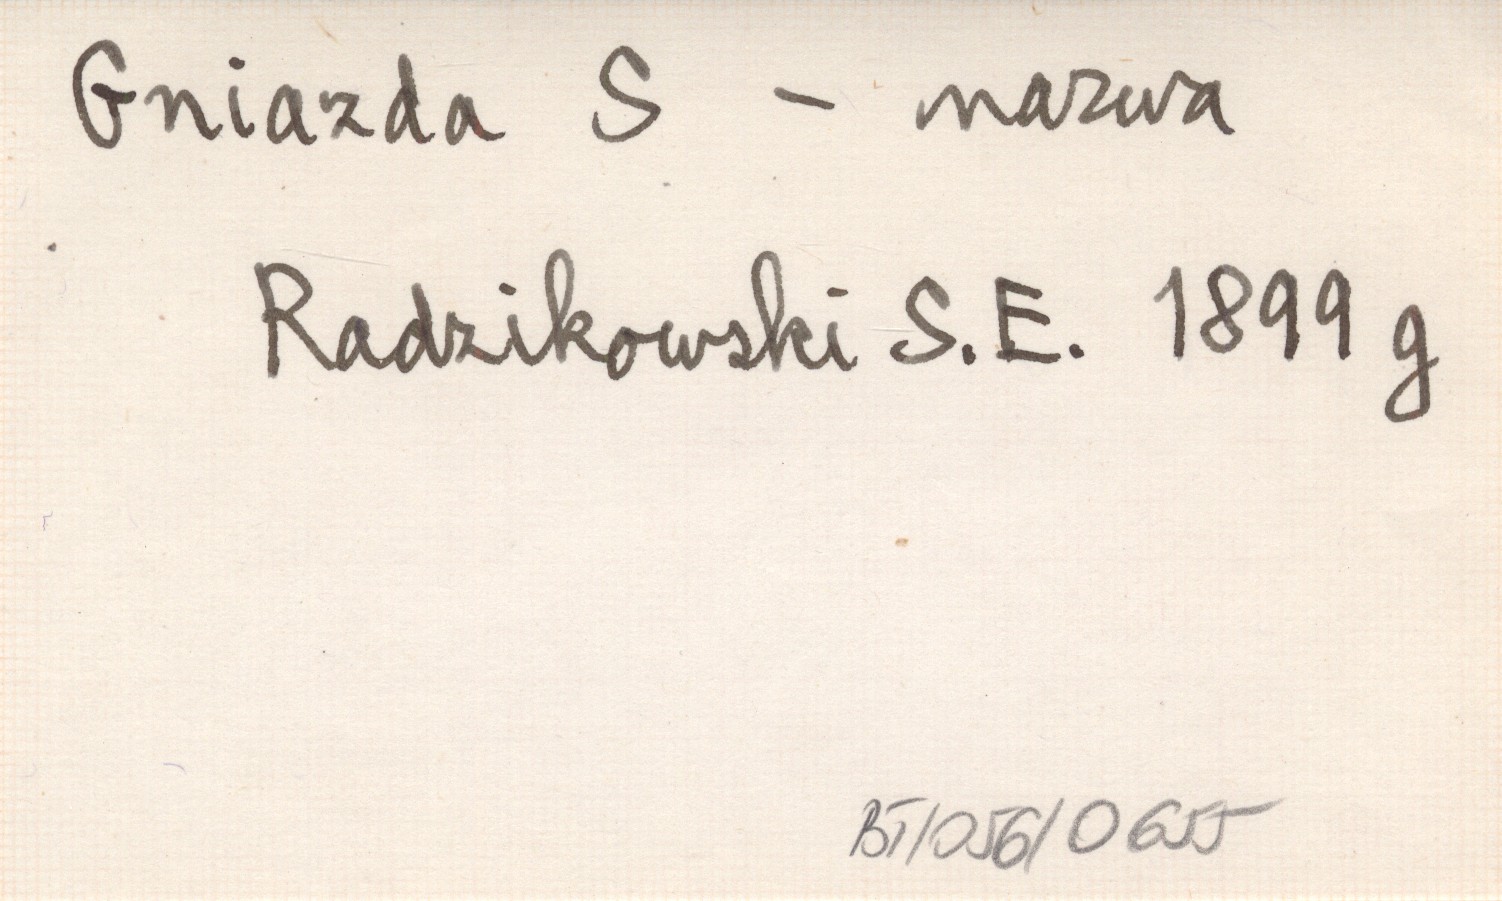 Gniazda S - nazwa
Radzikowski S.E. 1899 g
BT/056/0655